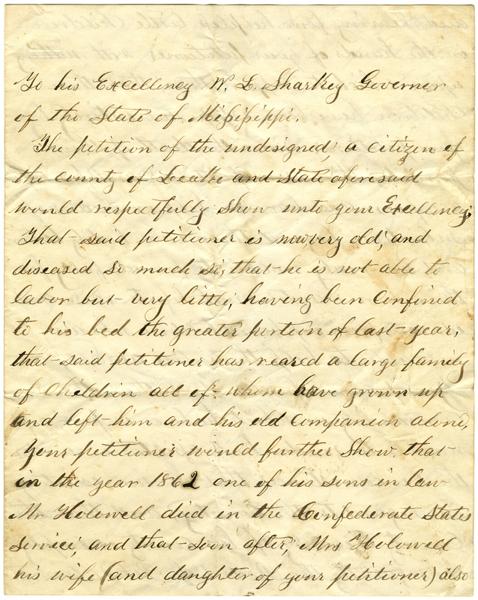 To his Excellency W. L. Sharkey Governer
of the State of Missisippi.
The petition of the undesigned, a citizen of
the county of Leake and State aforesaid
would respectfully show unto your Excellency,
That said petitioner is now very old, and
diseased so much so, that he is not able to
labor but very little, having been confined
to his bed the greater portion of last year,
that said petitiner has reared a large family
of children all of whom have grown up
and left him and his old companion alone,
your petitioner would further show that
in the year 1862 one of his sons in law
Mr Holowell died in the Confederate States
service, and that soon after, Mrs Holowell
his wife (and daughter of your petitioner) also